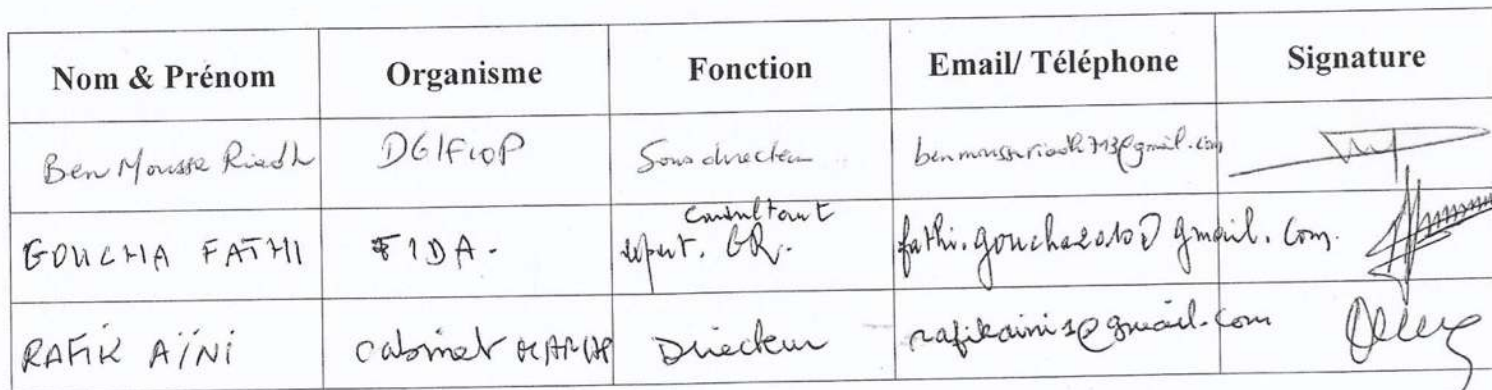 Nom & Prénom Organisme Fonction Email/ Téléphone Signature
Ben Mousse Riadh DGIFIOP Sous directeur
consultant
GOUCHA FATHI FIDA. expert. GR. fathi.goucha2010@gmail.com.
RAFIK AÏNI Cabinet Directeur rafikaini1@gmail.com